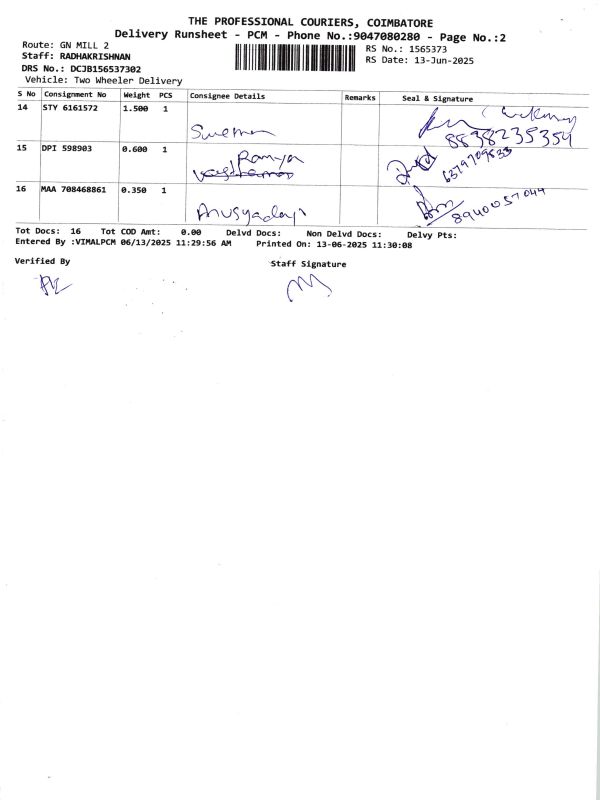 THE PROFESSIONAL COURIERS, COIMBATORE
Delivery Runsheet - PCM - Phone No.:9047080280 - Page No.:2
Route: GN MILL 2
RS No.: 1565373
Staff: RADHAKRISHNAN
RS Date: 13-Jun-2025
DRS No.: DCJB156537302
Vehicle: Two Wheeler Delivery
S No Consignment No Weight PCS Consignee Details Remarks Seal & Signature
14 STY 6161572 1.500 1
8838235354
15 DPI 598903 0.600 1 Ramya
6379709833
16 MAA 708468861 0.350 1
8940057044
Tot Docs: 16 Tot COD Amt: 0.00 Delvd Docs: Non Delvd Docs: Delvy Pts:
Entered By :VIMALPCM 06/13/2025 11:29:56 AM Printed On: 13-06-2025 11:30:08
Verified By Staff Signature